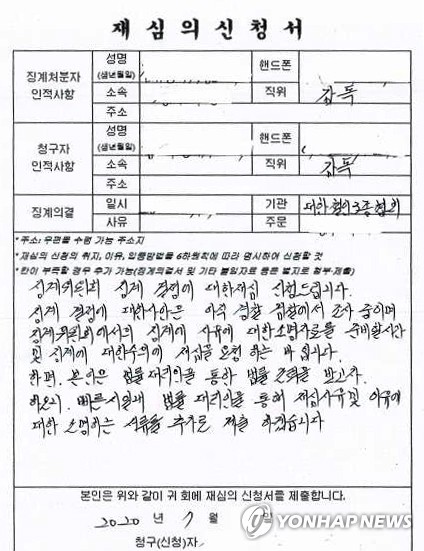 재 심 의 신 청 서
징계처분자
인적사항
성명
(생년월일)
핸드폰
소속
직위
감독
주소
청구자
인적사항
성명
(생년월일)
핸드폰
소속
직위
감독
주소
징계의결
일시
기관
대한철인3종협회
사유
주문
*주소: 우편물 수령 가능 주소지
*재심의 신청의 취지, 이유, 입증방법을 6하원칙에 따라 명시하여 신청할 것
*칸이 부족할 경우 추가 가능(징계의결서 및 기타 붙임자료 등은 별지로 첨부·제출)
징계위원회 징계 결정에 대한재심 신청드립니다.
징계 결정에 대한사안은 아직 경찰 검찰에서 조사 중이며
징계위원회에서의 징계에 사유에 대한소명자료를 준비할시간
및 징계에 대한수의에 재심을 요청 하는 바 입니다.
한편. 본인은 법률 대리인을 통한 법률 조력을 받고자.
하오니. 빠른시일내 법률 대리인을 통해 재심사유및 이유에
대한 소명하는 서류를 추가로 제출 하겠습니다
본인은 위와 같이 귀 회에 재심의 신청서를 제출합니다.
2020 년 7 월 일
청구(신청)자
YONHAPNEWS